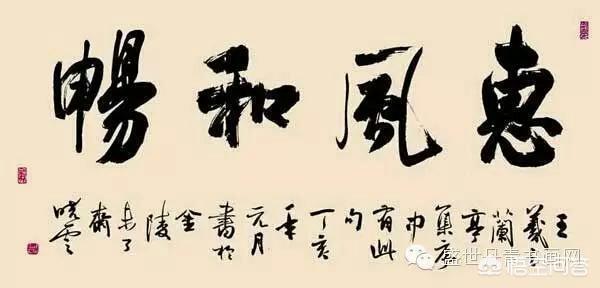 惠風和暢
王羲之蘭亭集序中有此句丁亥年元月書於金陵未了齋曉雲
盛世丹青书画网
悟空问答